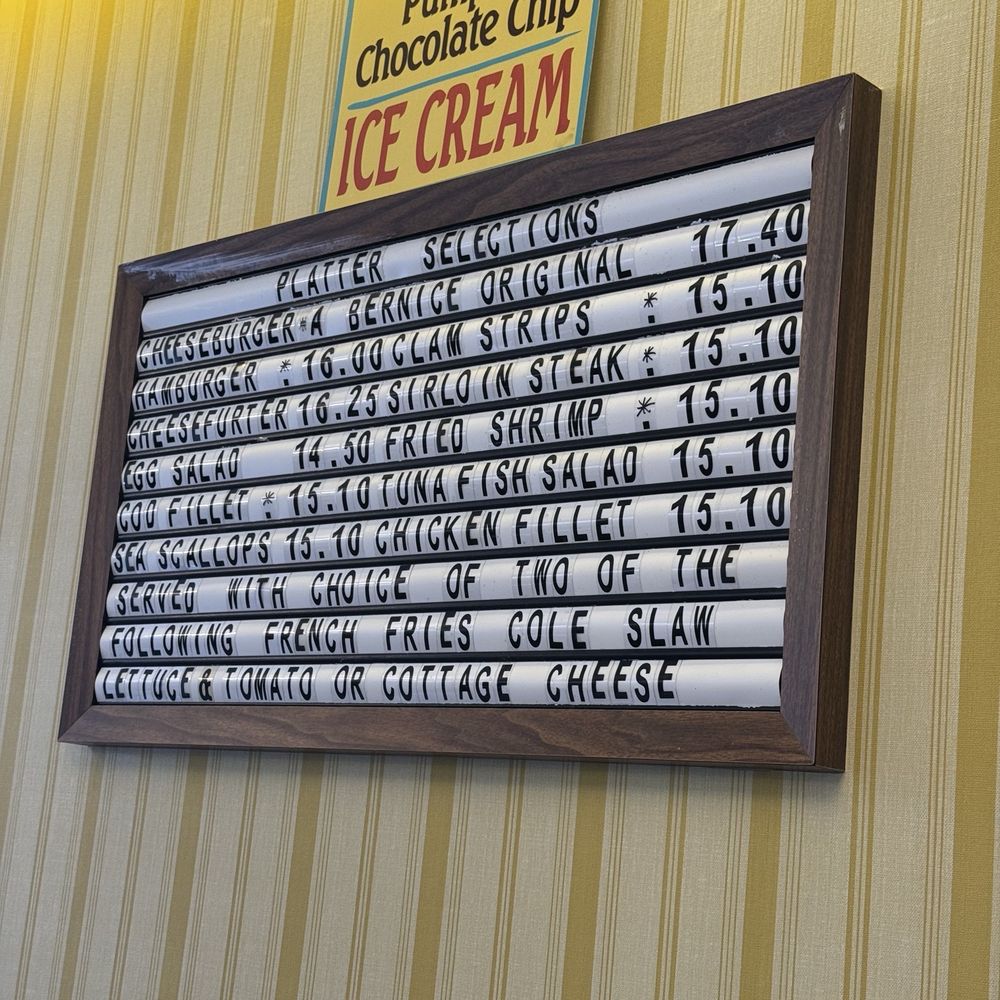 Chocolate Chip
ICE CREAM
PLATTER SELECTIONS
CHEESEBURGER*A BERNICE ORIGINAL 17.40
HAMBURGER * 16.00 CLAM STRIPS * 15.10
CHEESEFURTER 16.25 SIRLOIN STEAK * 15.10
EGG SALAD 14.50 FRIED SHRIMP * 15.10
COD FILLET * 15.10 TUNA FISH SALAD 15.10
SEA SCALLOPS 15.10 CHICKEN FILLET 15.10
SERVED WITH CHOICE OF TWO OF THE
FOLLOWING FRENCH FRIES COLE SLAW
LETTUCE & TOMATO OR COTTAGE CHEESE